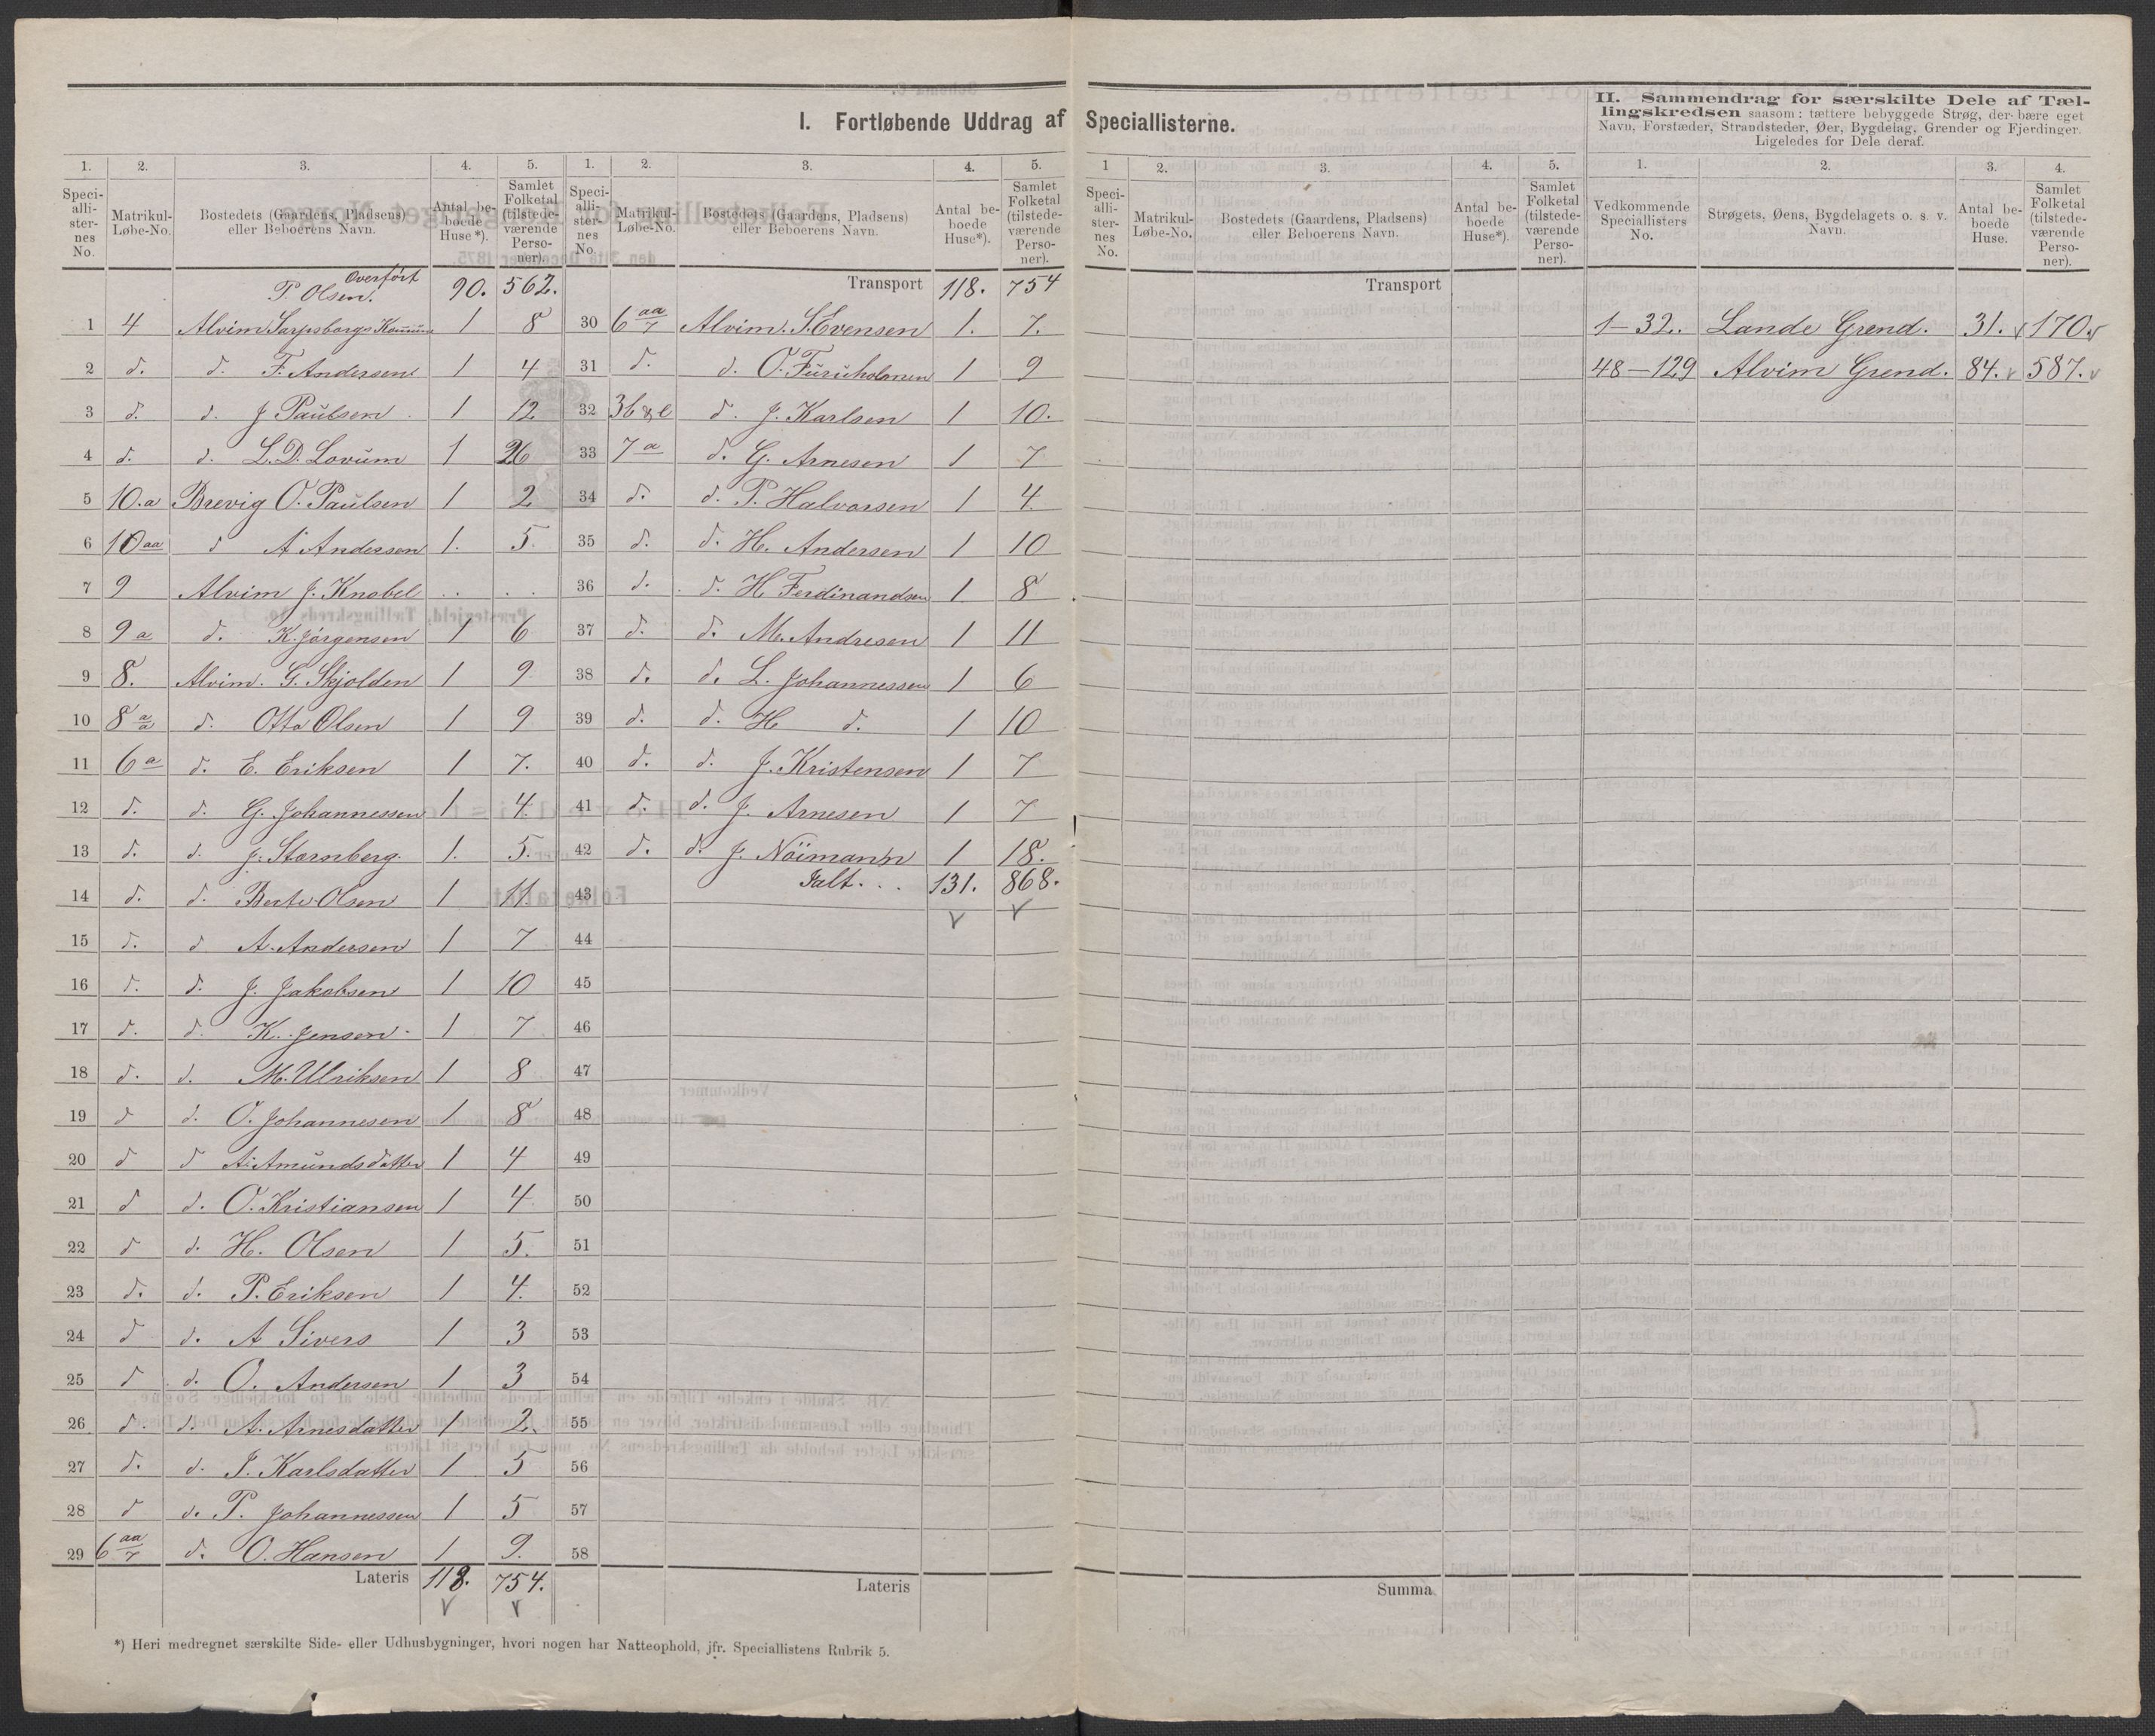 I. Fortløbende Uddrag af Speciallisterne.
II. Sammendrag for særskilte Dele af Tæl-
lingskredsen saasom: tættere bebyggede Strøg, der bære eget
Navn, Forstæder, Strandsteder, Øer, Bygdelag, Grender og Fjerdinger.
Ligeledes for Dele deraf.
1. 2. 3. 4. 5. 1. 2. 3. 4. 5. 1 2. 3. 4. 5. 1. 2. 3. 4.
Speci-alli-ster-nes No. Matrikul-Løbe-No. Bostedets (Gaardens, Pladsens) eller Beboerens Navn. Antal be-boede Huse*). Samlet Folketal (tilstede-værende Perso-ner).
Speci-alli-ster-nes No. Matrikul-Løbe-No. Bostedets (Gaardens, Pladsens) eller Beboerens Navn. Antal be-boede Huse*). Samlet Folketal (tilstede-værende Perso-ner).
Speci-alli-ster-nes No. Matrikul-Løbe-No. Bostedets (Gaardens, Pladsens) eller Beboerens Navn. Antal be-boede Huse*). Samlet Folketal (tilstede-værende Perso-ner).
Vedkommende Speciallisters No. Strøgets, Øens, Bygdelagets o. s. v. Navn. Antal be-boede Huse. Samlet Folketal (tilstede-værende Perso-ner).
Overført
P. Olsen. 90. 562.
1 4 Alvim Sarpsborgs Komune 1 8
2 d. d. F. Andersen 1 4
3 d. d. J Paulsen 1 12
4 d. d. L.D. Lovum 1 26
5 10.a Brevig O. Paulsen 1 2
6 10aa d A Andersen 1. 5.
7 9 Alvim J. Knobel . .
8 9 a d. K. Jørgensen 1 6
9 8. Alvim. G. Skjolden 1 9
10 8 a/a d. Otto Olsen 1 9
11 6 a d. E. Eriksen 1 7.
12 d. d. G. Johannessen 1 4.
13 d. d. J. Stormberg. 1. 5.
14 d. d. Berte Olsen 1 11.
15 d. d A. Andersen 1 7
16 d. d. J. Jakobsen 1 10
17 d. d. K. Jensen. 1 7
18 d. d. M. Ulriksen 1 8
19 d d. O. Johannesen 1 8
20 d d A. Amundsdatter 1 4
21 d d. O. Kristiansen 1 4
22 d d. H. Olsen 1 5.
23 d. d. P. Eriksen 1 4.
24 d d. A Sivers 1 3
25 d d. O. Andersen 1 3
26 d. d. A. Arnesdatter 1 2.
27 d. d. J. Karlsdatter 1 5
28 d d. P. Johannessen 1 5
29 6 aa/7 d. O. Hansen 1 9.
Lateris 118. 754.
Transport 118. 754
30 6 aa/7 Alvim. S. Evensen 1. 7.
31 d. d. O. Furuholmen 1 9
32 36 & e d. J. Karlsen 1 10.
33 7 a d. G. Arnesen 1 7
34 d. d. P. Halvorsen 1 4.
35 d. d. H. Andersen 1 10
36 d. d. H Ferdinandsen 1 8
37 d. d. M. Andresen 1 11
38 d. d. L. Johannessen 1 6
39 d. d. H d. 1 10
40 d. d. J. Kristensen 1 7
41 d. d. J. Arnesen 1 7
42 d. d. J. Noimann 1 18.
43 Ialt. . . 131. 868.
44
45
46
47
48
49
50
51
52
53
54
55
56
57
58
Lateris
Transport
Summa
1–32. Lande Grend. 31. 170.
48–129 Alvim Grend. 84. 587.
*) Heri medregnet særskilte Side- eller Udhusbygninger, hvori nogen har Natteophold, jfr. Speciallistens Rubrik 5.